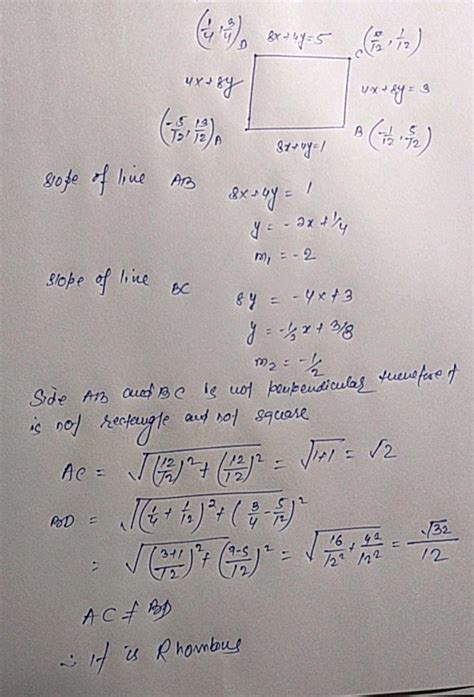 (1/4, 3/4) D 8x+4y=5 C (7/12, 1/12)
4x+8y 4x+8y=3
(-5/12, 13/12) A 8x+4y=1 B (-1/12, 5/12)
slope of line AB 8x+4y = 1
y = -2x+1/4
m₁ = -2
slope of line BC 8y = -4x+3
y = -1/2x+3/8
m₂ = -1/2
Side AB and BC is not perpendicular therefore it
is not rectangle and not square
AC = √((12/12)²+(12/12)²) = √(1+1) = √2
BD = √((1/4+1/12)²+(3/4-5/12)²)
= √((3+1/12)²+(9-5/12)²) = √(16/12²+42/12²) = √32/12
AC ≠ BD
∴ it is Rhombus